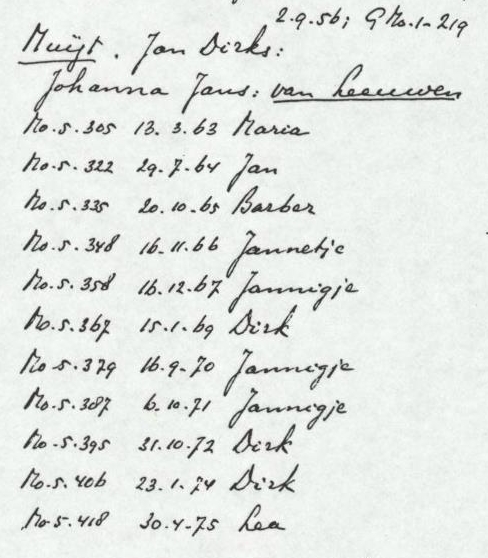 2.9.56; G Mo.1-219
Muijt. Jan Dirks:
Johanna Jans: van Leeuwen
Mo.5.305 13.3.63 Maria
Mo.5.322 29.7.64 Jan
Mo.5.335 20.10.65 Barber
Mo.5.348 16.11.66 Jannetje
Mo.5.358 16.12.67 Jannigje
Mo.5.367 15.1.69 Dirk
Mo.5.379 16.9.70 Jannigje
Mo.5.387 6.10.71 Jannigje
Mo.5.395 31.10.72 Dirk
Mo.5.406 23.1.74 Dirk
Mo.5.418 30.4.75 Lea